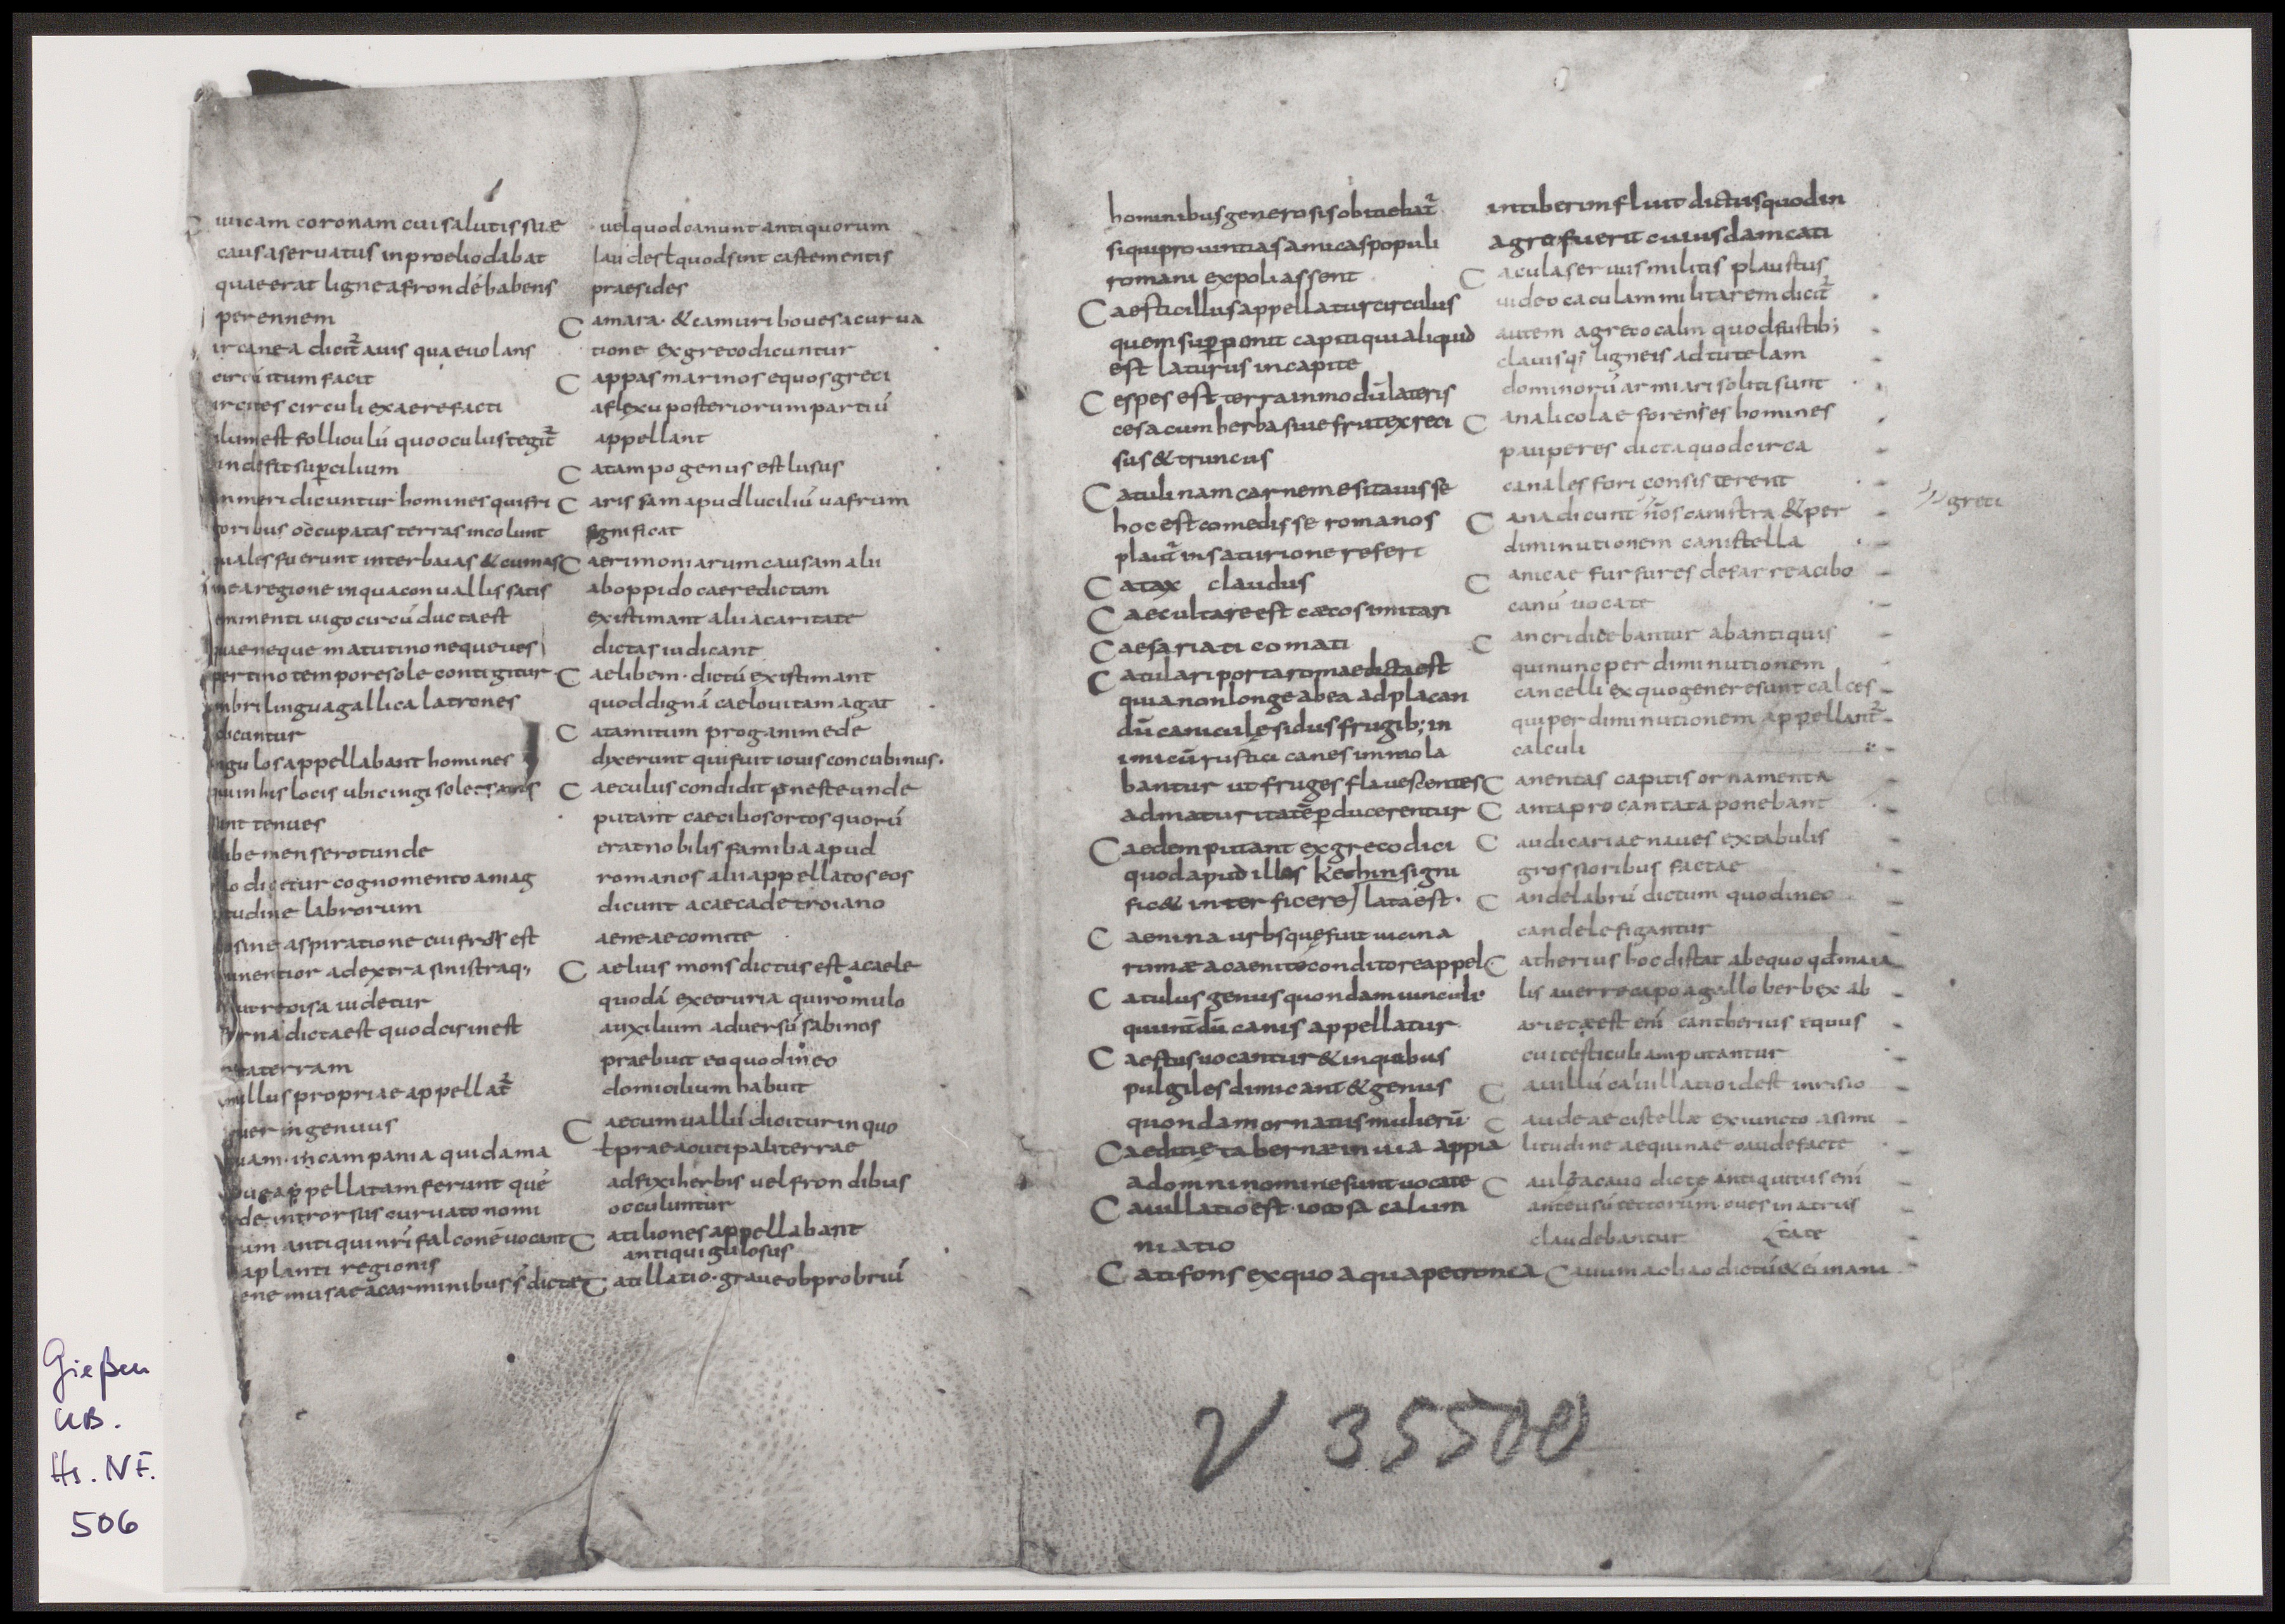 uicam coronam cui salutis suae
causa seruatus in proelio dabat
quae erat lignea frondé habens
perennem
ircanea dicit̃ auis quae uolans
circúitum facit
ircites circuli ex aere facti
ilium est follioulú quo oculus tegit̃
unde fit suꝑcilium
mmeri dicuntur homines qui fri
goribus occupatas terras incolunt
quales fuerunt inter baias & cumas
in ea regione in qua conuallis satis
eminenti uigo circú ducta est
quae neque matutino neque ues
pertino tempore sole contigitur
mbri lingua gallica latrones
dicuntur
ngulos appellabant homines
qui in his locis ubi cingi solet satis
sunt tenues
libe mense rotunde
lo dicitur cognomento a mag
nitudine labrorum
sine aspiratione cui frons est
minentior a dextra sinistraq;
ut retoisa uidetur
erna dicta est quod cis in est
terram
millus propriae appellat̃
puer ingenuus
puam in campania quidam a
pue appellatam ferunt qué
de introrsus curuato nomi
tum antiqui nri falconé uocant
a planti regionis
ene musae a carminibus s̃ dictae
uel quod canunt antiquorum
laudes ł quod sint castementis
praesides
Camara & camuri boues a curua
tione ex greco dicuntur
Cappas marinos equos greci
a flexu posteriorum partiú
appellant
Catampo genus est lusus
Carissam apud luciliú uafrum
significat
Caerimoniarum causam alii
ab oppido caere dictam
existimant alii a caritate
dictas iudicant
Caelibem dictú existimant
quod digná caelo uitam agat
Catamitum pro ganimede
dixerunt qui fuit iouis concubinus.
Caeculus condidit p̄neste unde
putant caecilios ortos quorú
erat nobilis familia apud
romanos alii appellatos eos
dicunt a caecade troiano
aeneae comite
Caelius mons dictus est a caele
quodá ex etruria qui romulo
auxilium aduersú sabinos
praebuit eo quod in eo
domicilium habuit
Caecum uallú dicitur in quo
ł praeaouti pali terrae
adfixi herbis uel frondibus
occuluntur
Catiliones appellabant
antiqui gulosus
Catillatio. graue obprobriú
hominibus generosis obiciebat̃
si qui prouintias amicas populi
romani expoliassent
Caesticillus appellatur circulus
quem suꝑponit capiti qui aliquid
est laturus in capite
Cespes est terra in modū lateris
cesa cum herba siue frutex reci
sus & truncus
Catulinam carnem esitauisse
hoc est comedisse romanos
plaut̃ in saturione refert
Catax claudus
Caecultare est cæcos imitari
Caesariati comati
Catulari porta romae dicta est
quia non longe ab ea ad placan
dū caniculę sidus frugib; in
imicū rustici canes immola
bantur ut fruges flauescentes
ad maturitatē ꝑducerentur
Caedem putant ex greco dici
quod apud illos kechin signi
fic& interficere lata est.
Caenina urbs que fuit uicina
rumæ a caenito conditore appel
Catulus genus quondam uinculi
qui intdū canis appellatur
Caestus uocantur & in quibus
pulgiles dimicant & genus
quondam ornatus mulierū
Caeditię tabernæ in uia appia
a domni nomine sunt uocate
Cauillatio est iocosa calum
niatio
Cati fons ex quo aqua petronia
in tiberim fluit dictus quod in
agro fuerit cuiusdam cati
Cacula seruus militis plaustus
uideo caculam militarem dicit̃
autem a greco calin quod fustib;
clauisq; ligneis ad tutelam
dominorú armiari soliti sunt
Canalicolae forenses homines
pauperes dicta quod circa
canales fori consisterent
Cana dicunt nõs canistra & per
diminutionem canistella
Canicae furfures de farre a cibo
canú uocate
Cancri dicebantur ab antiquis
qui nunc per diminutionem
cancelli ex quo genere sunt calces
qui per diminutionem appellant̃
calculi
Canentas capitis ornamenta
Canta pro cantata ponebant
Caudicariae naues ex tabulis
grossioribus factae
Candelabrú dictum quod in eo
candele figantur
Catherius hoc distat ab equo qđ maia
lis a uerre capo a gallo berbex ab
ariete est ení cantherius equus
cui testiculi amputantur
Cauillú cauillatio idest inrisio
Caudeae cistellæ ex iuncto a simi
litudine aequinae caude facte
Caulę a cauo dicte antiquitus ení
ante usú tectorúm oues in atrus
claudebantur tate
Cauum a chao dictú ex ei inani
greci
V 35500
Gießen
UB.
Hs. NF.
506